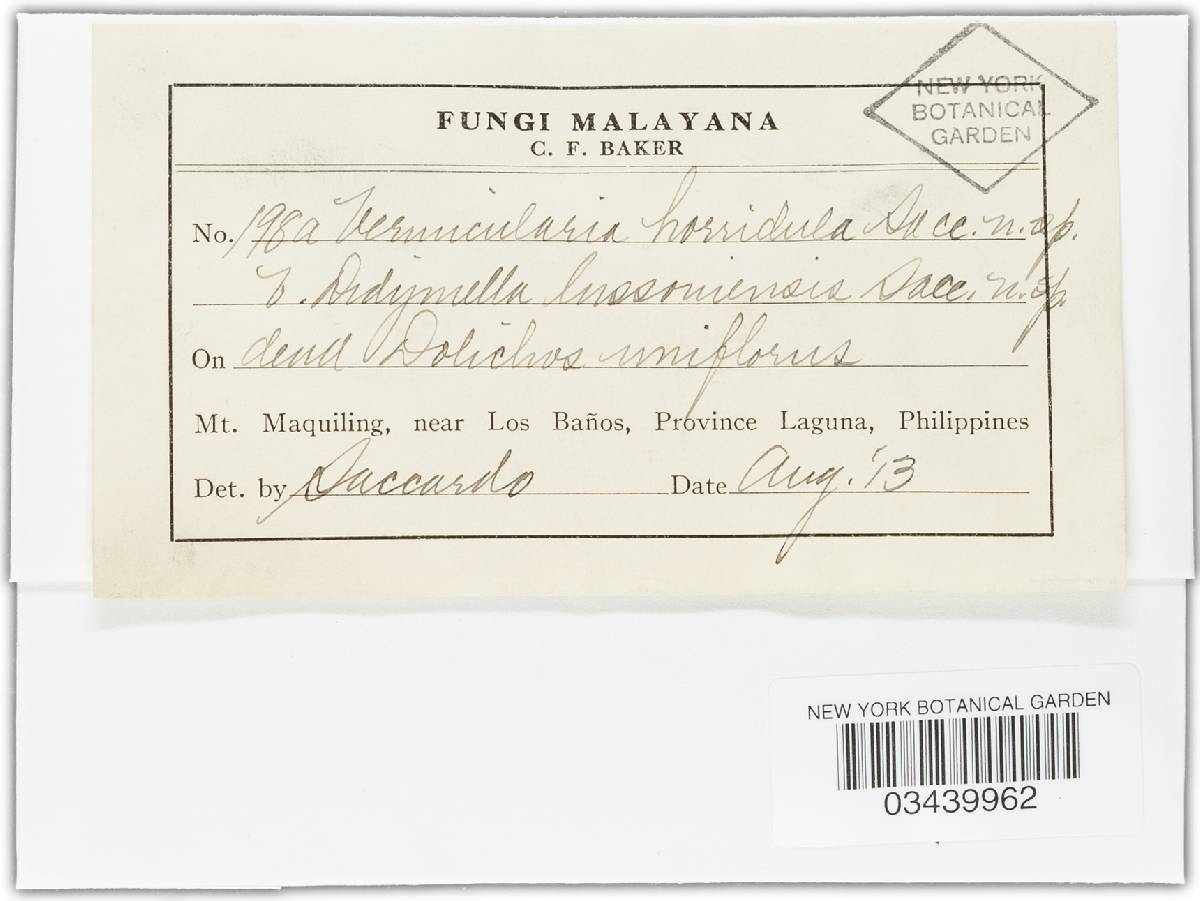 FUNGI MALAYANA
C. F. BAKER
NEW YORK
BOTANICAL
GARDEN
No. 198a Vermicularia horridula Sacc. n. sp.
V. Didymella lussoniensis Sacc. n. sp.
On dead Dolichos uniflorus
Mt. Maquiling, near Los Baños, Province Laguna, Philippines
Det. by Saccardo Date Aug. '13
NEW YORK BOTANICAL GARDEN
03439962